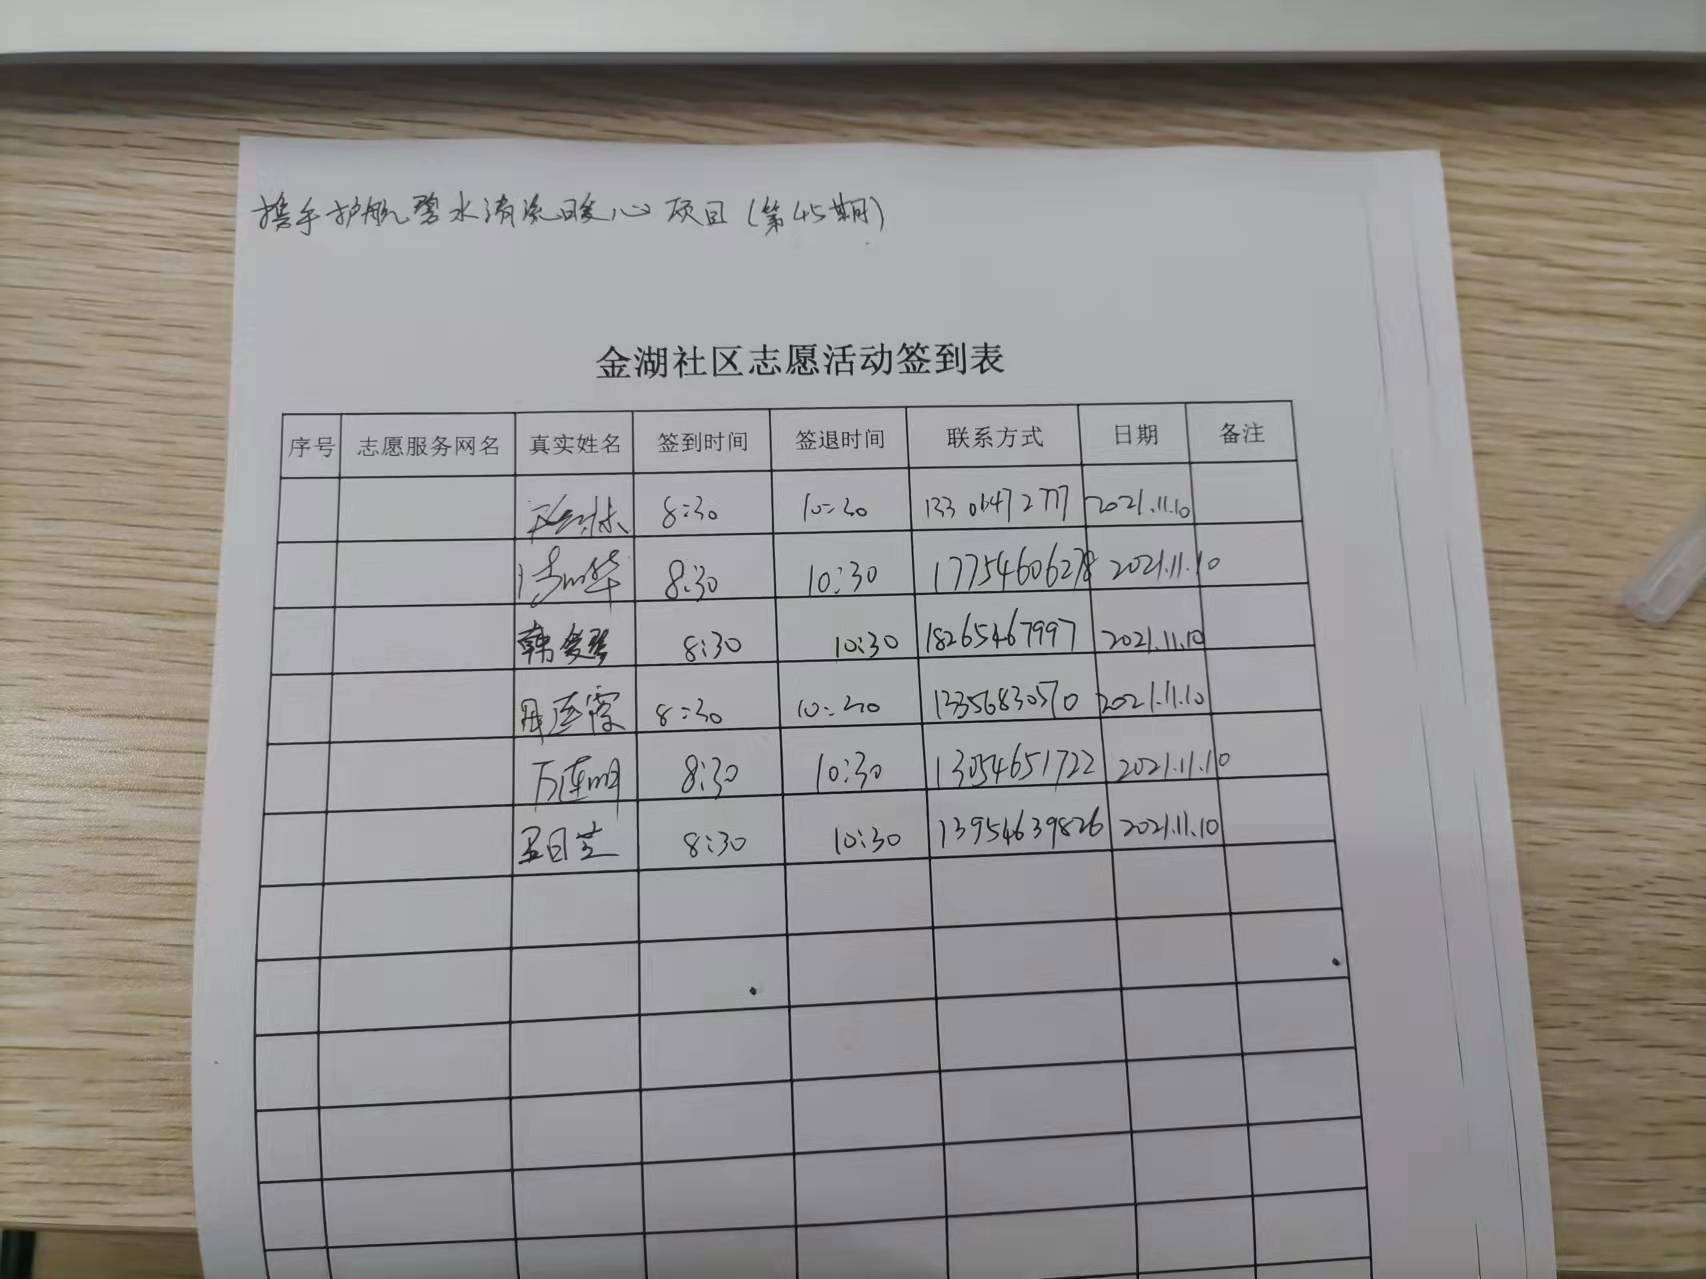 携手护航碧水清流暖心项目(第45期)
金湖社区志愿活动签到表
序号 志愿服务网名 真实姓名 签到时间 签退时间 联系方式 日期 备注
8:30 10:30 2021.11.10
8:30 10:30 17754606278 2021.11.10
韩爱琴 8:30 10:30 18265467997 2021.11.10
8:30 10:30 13356830570 2021.11.10
万连明 8:30 10:30 13054651722 2021.11.10
8:30 10:30 13954639826 2021.11.10